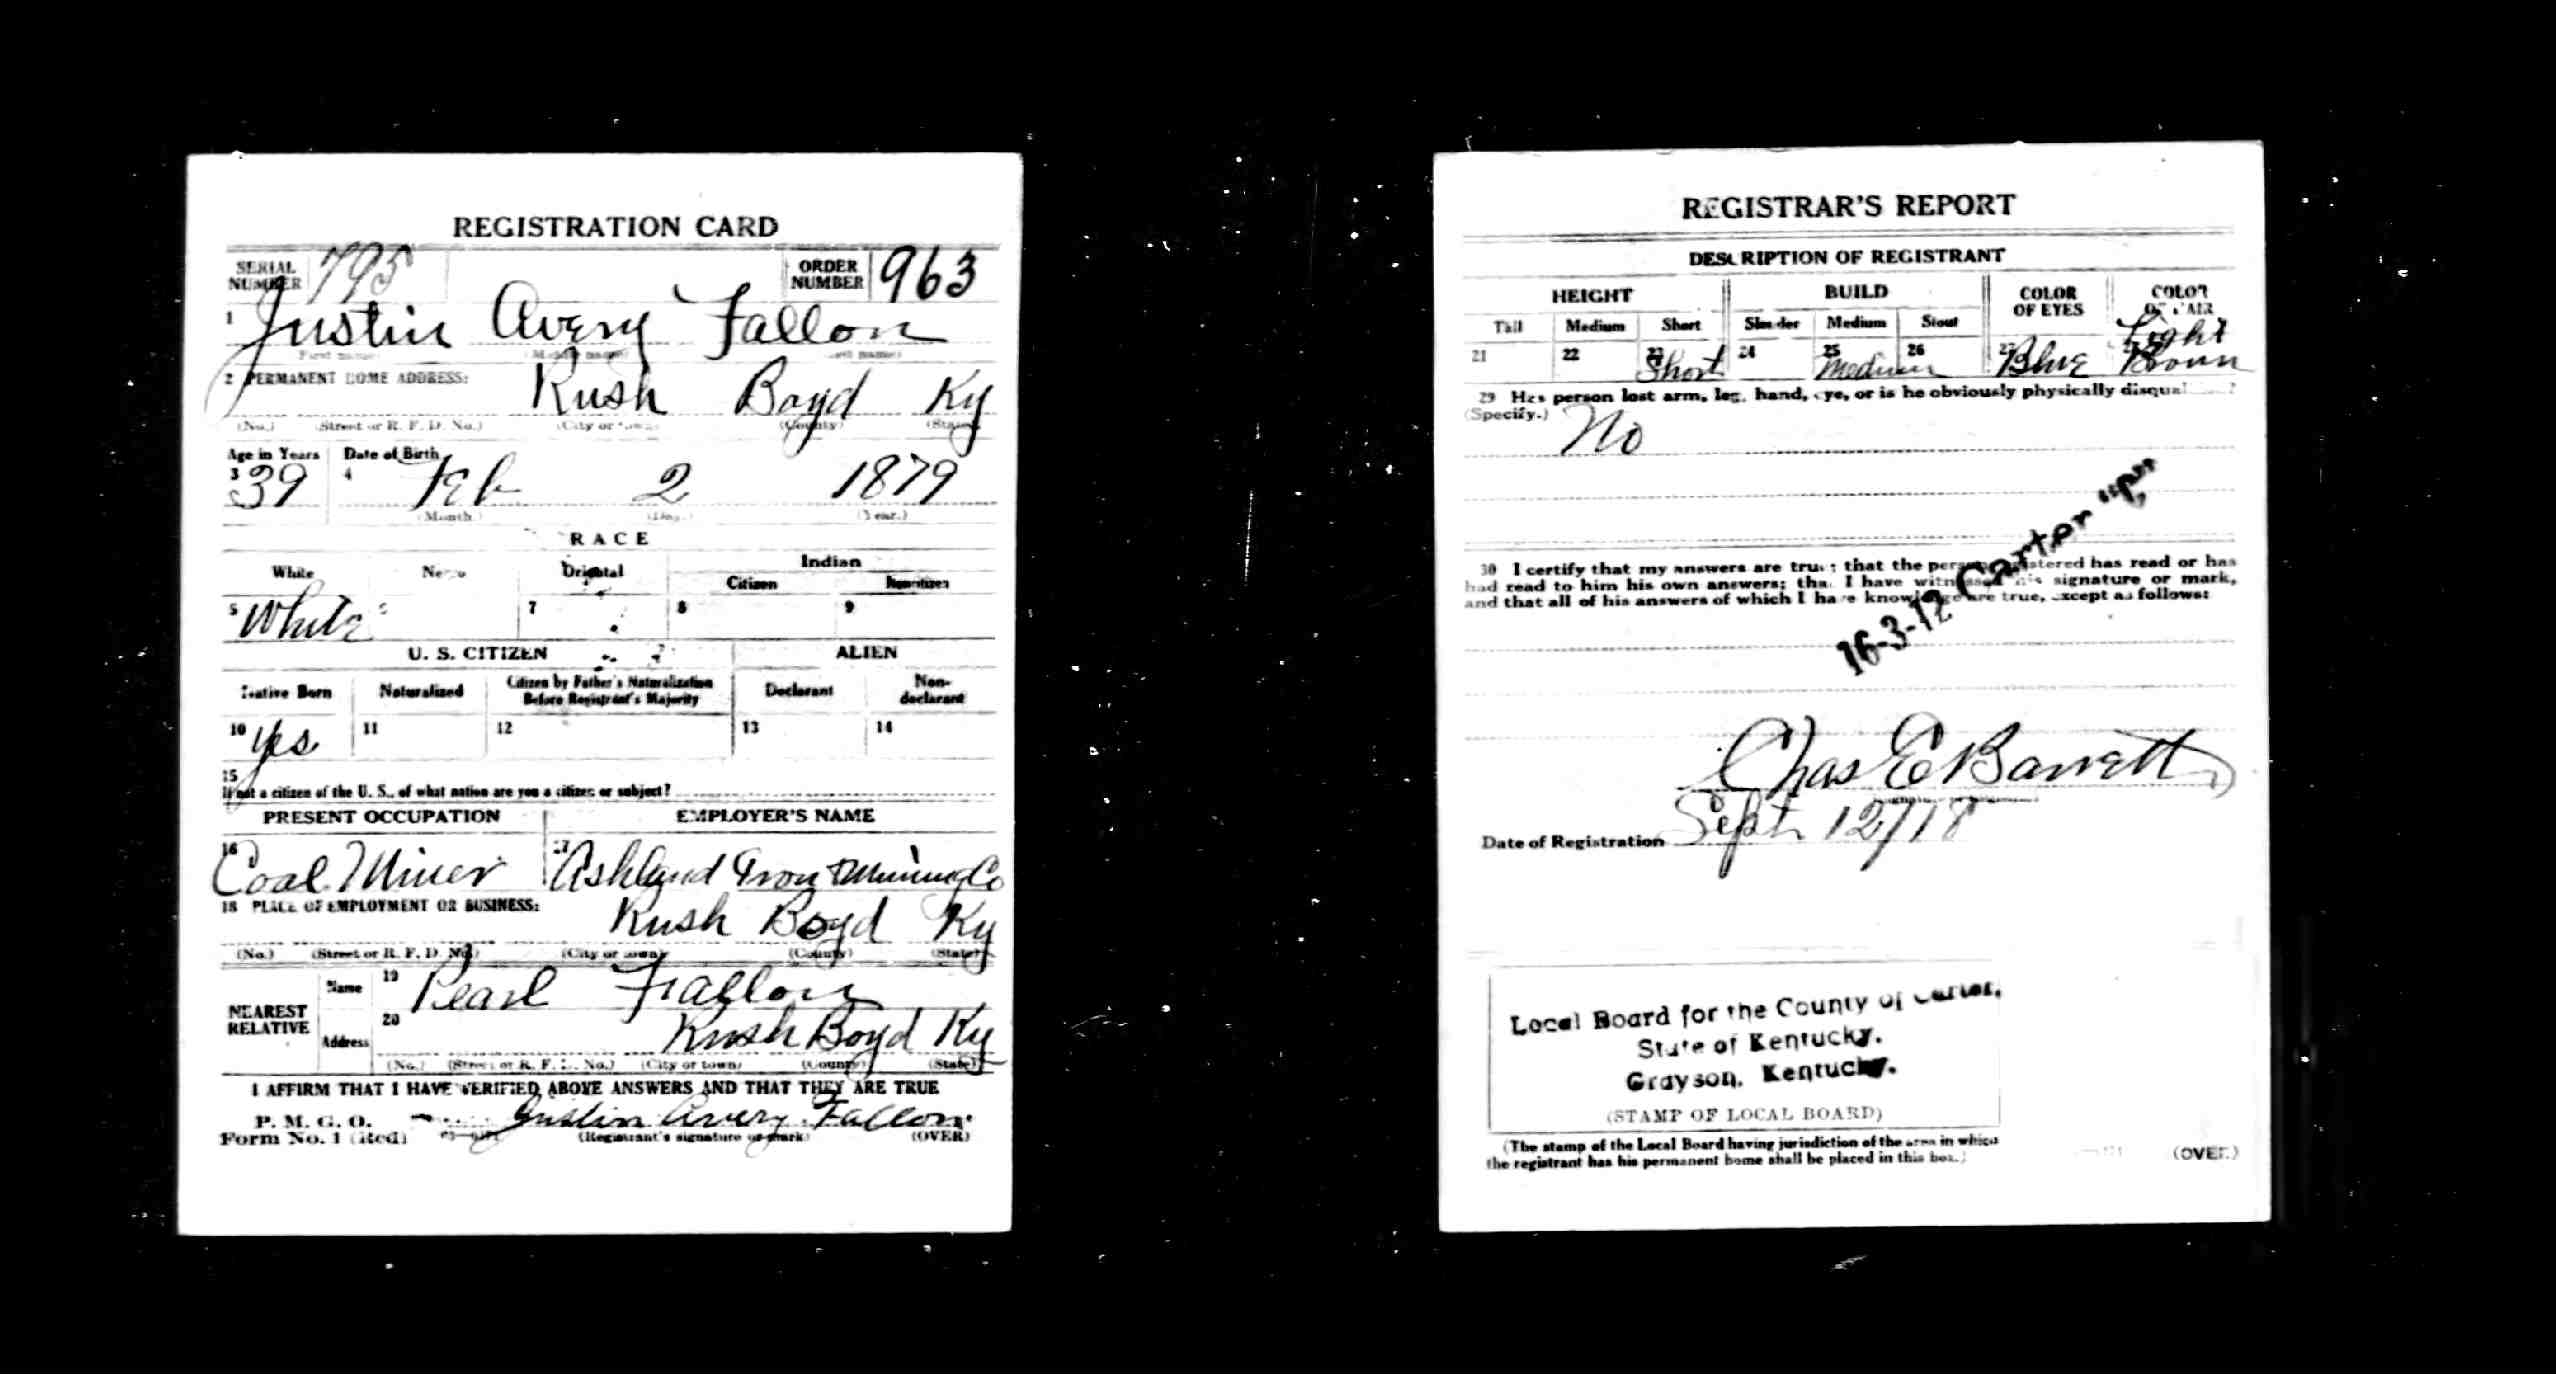 REGISTRATION CARD
SERIAL NUMBER 795 ORDER NUMBER 963
1 Justin Avery Fallon
(First name) (Middle name) (Last name)
2 PERMANENT HOME ADDRESS: Rush Boyd Ky
(No.) (Street or R. F. D. No.) (City or town) (County) (State)
Age in Years Date of Birth
3 39 4 Feb 2 1879
(Month.) (Day.) (Year.)
RACE
White Negro Oriental Indian
Citizen Noncitizen
5 White 6 7 8 9
U. S. CITIZEN ALIEN
Native Born Naturalized Citizen by Father's Naturalization Before Registrant's Majority Declarant Non-declarant
10 Yes 11 12 13 14
15
If not a citizen of the U. S., of what nation are you a citizen or subject?
PRESENT OCCUPATION EMPLOYER'S NAME
16 Coal Miner 17 Ashland Iron & Mining Co
18 PLACE OF EMPLOYMENT OR BUSINESS: Rush Boyd Ky
(No.) (Street or R. F. D. No.) (City or town) (County) (State)
NEAREST RELATIVE Name 19 Pearl Fallon
Address 20 Rush Boyd Ky
(No.) (Street or R. F. D. No.) (City or town) (County) (State)
I AFFIRM THAT I HAVE VERIFIED ABOVE ANSWERS AND THAT THEY ARE TRUE
P. M. G. O.
Form No. 1 (Red) Justin Avery Fallon
(Registrant's signature or mark) (OVER)
REGISTRAR'S REPORT
DESCRIPTION OF REGISTRANT
HEIGHT BUILD COLOR OF EYES COLOR OF HAIR
Tall Medium Short Slender Medium Stout
21 22 23 Short 24 25 Medium 26 27 Blue Light Brown
29 Has person lost arm, leg, hand, eye, or is he obviously physically disqualified?
(Specify.) No
16-3-12 Carter "C"
30 I certify that my answers are true; that the person registered has read or has
had read to him his own answers; that I have witnessed his signature or mark,
and that all of his answers of which I have knowledge are true, except as follows:
Chas E Barrett
Date of Registration Sept 12/18
Local Board for the County of Carter,
State of Kentucky.
Grayson, Kentucky.
(STAMP OF LOCAL BOARD)
(The stamp of the Local Board having jurisdiction of the area in which
the registrant has his permanent home shall be placed in this box.)
(OVER)